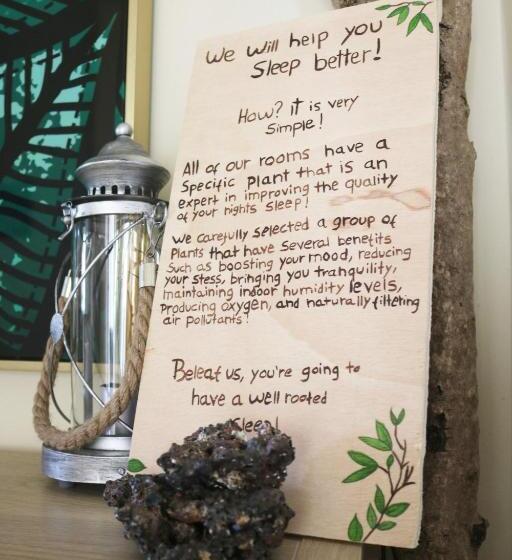 We will help you
Sleep better!
How? it is very
Simple!
All of our rooms have a
Specific Plant that is an
expert in improving the quality
of your nights sleep!
We carefully selected a group of
Plants that have several benefits
Such as boosting your mood, reducing
your stess, bringing you tranquility,
maintaining indoor humidity levels,
Producing oxygen, and naturally filtering
air pollutants!
Beleaf us, you're going to
have a well rooted
Sleep!